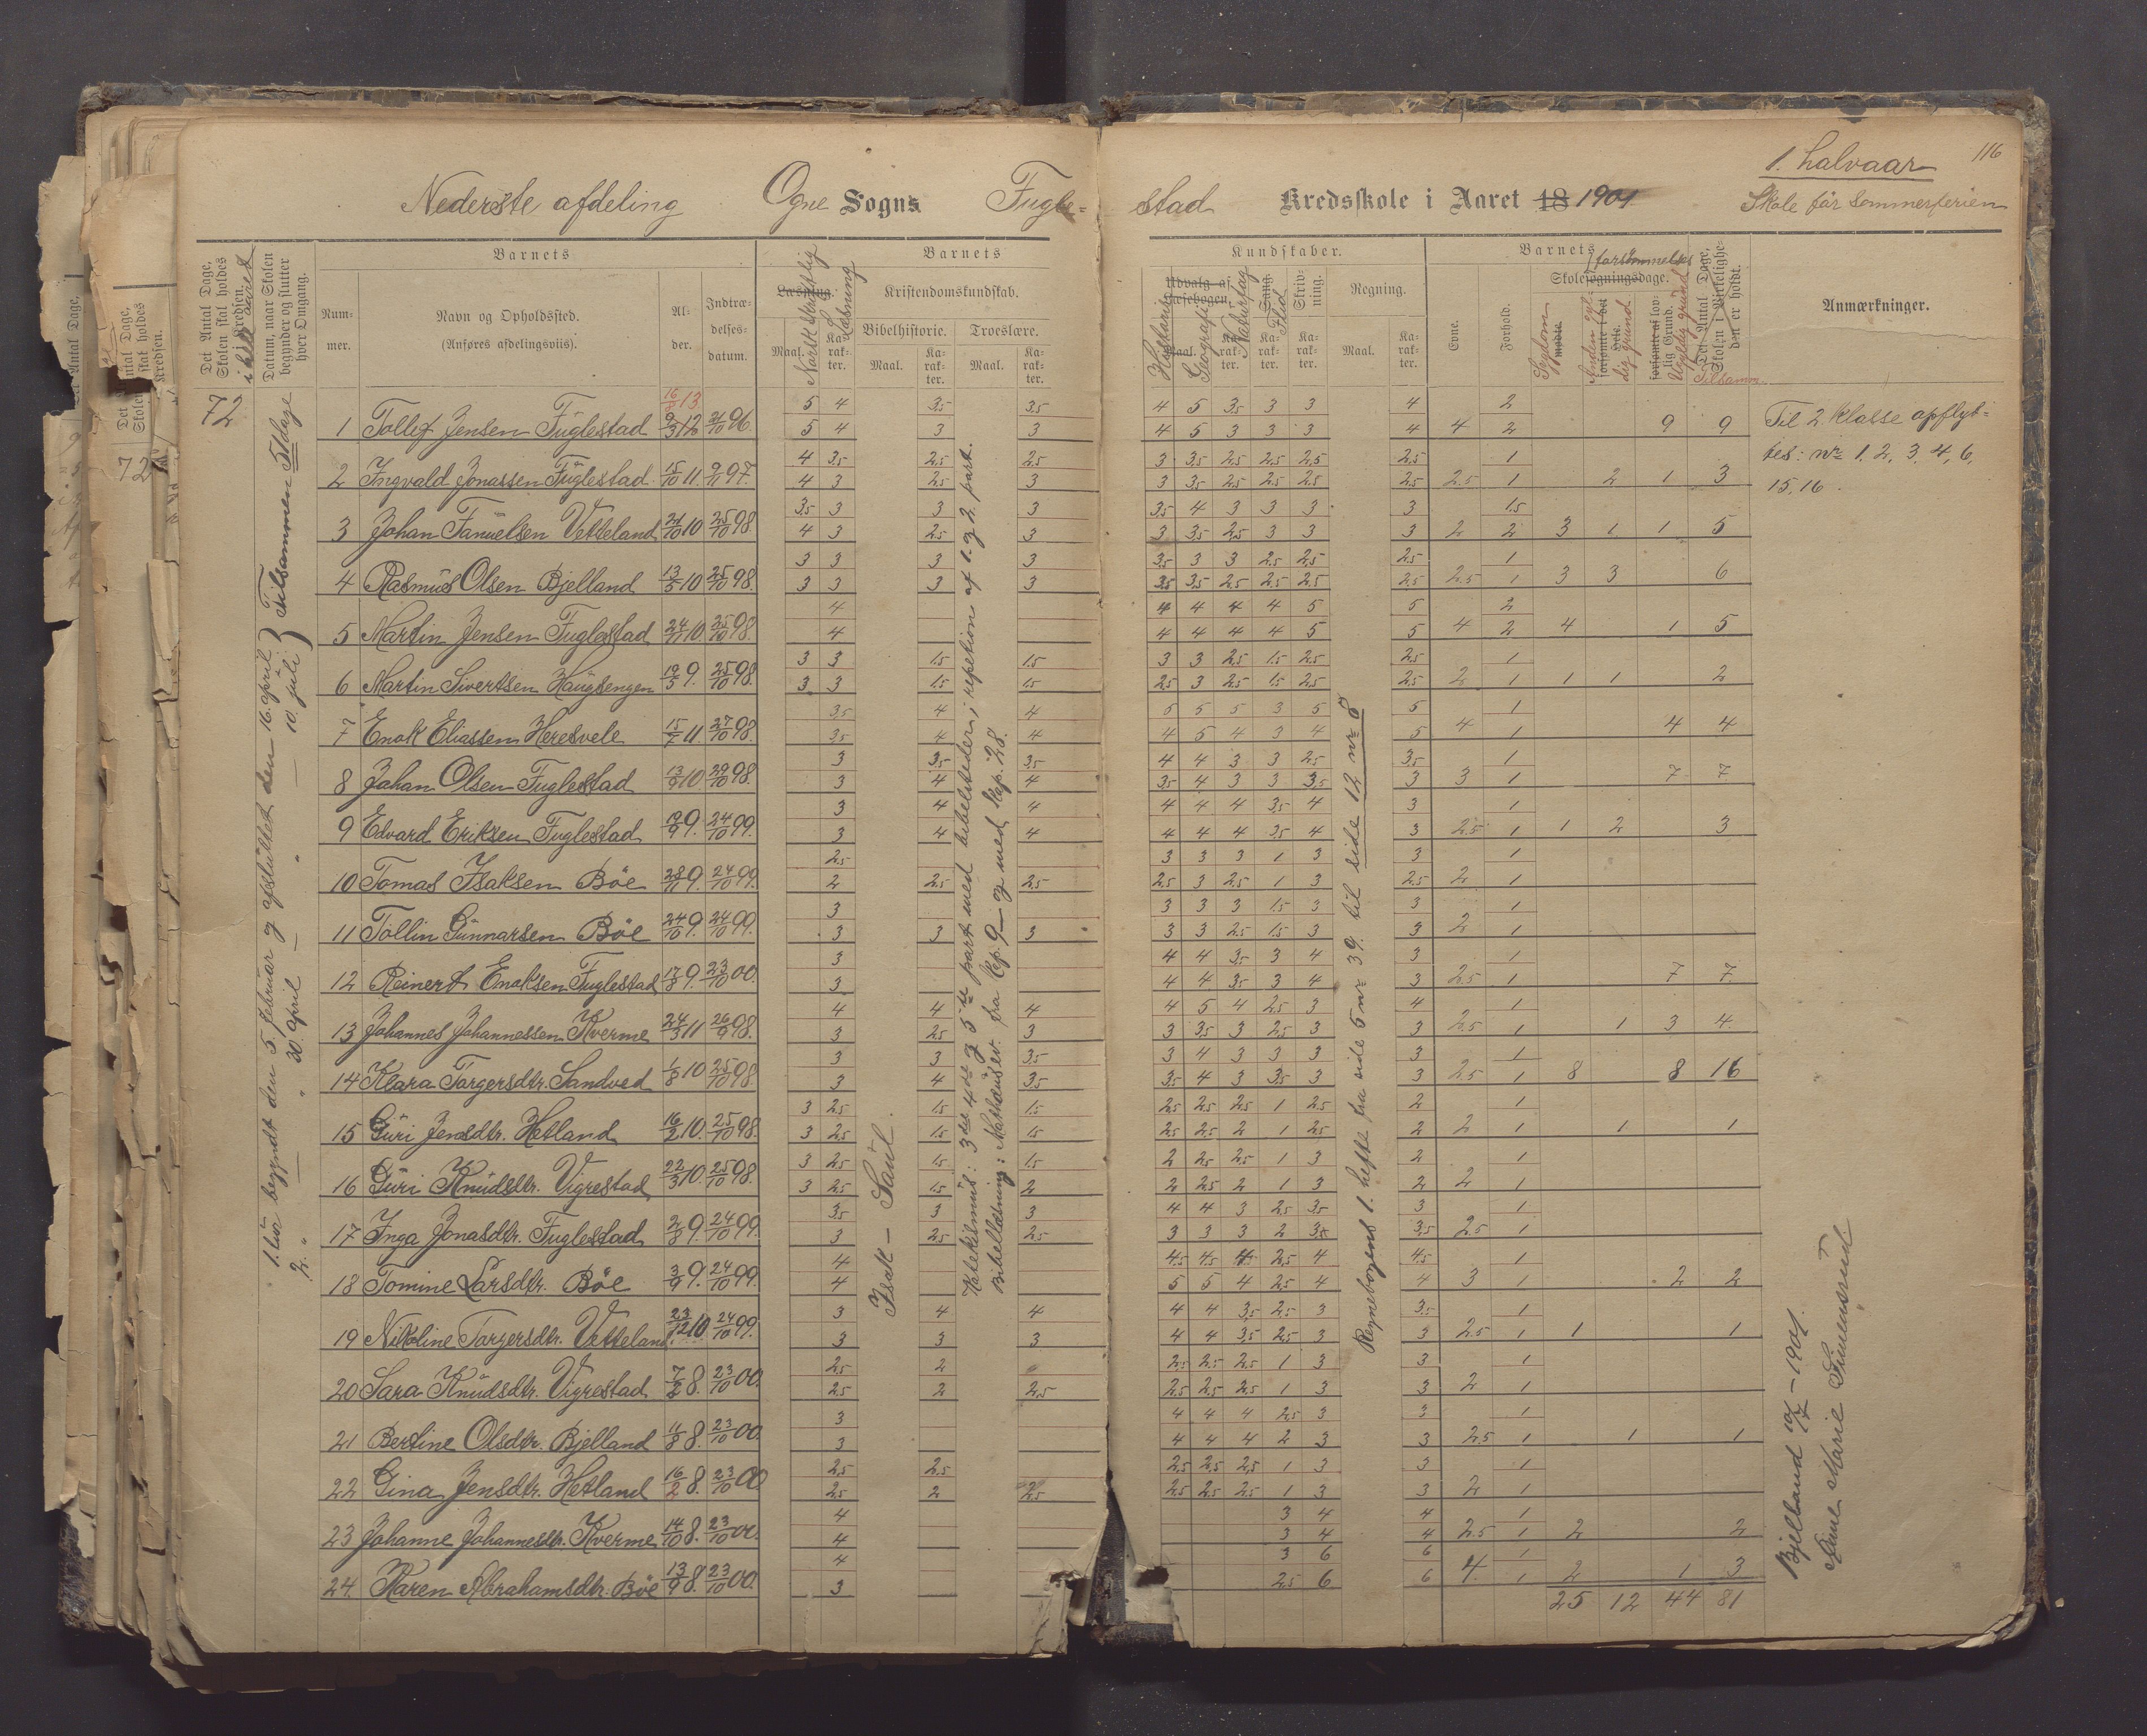 116
1. halvaar
Nederste afdeling Ogne Sogns Fugle- stad Kredsskole i Aaret 18 1901 Skole før sommerferien
Det Antal Dage, Skolen skal holdes i Kredsen. i hele aaret
Datum, naar Skolen begynder og slutter hver Omgang.
Barnets
Num- mer.
Navn og Opholdssted. (Anføres afdelingsviis).
Al- der.
Indtræ- delses- datum.
Barnets Kundskaber.
Læsning. Norsk skriftlig Læsning
Maal. Ka- rak- ter.
Kristendomskundskab.
Bibelhistorie. Troeslære.
Maal. Ka- rak- ter. Maal. Ka- rak- ter.
Udvalg af Læsebogen. Historie Geografi Naturfag
Sang. Flid
Skriv- ning.
Regning.
Maal. Ka- rak- ter.
Barnets
Evne. Forhold.
Skolesøgningsdage. forsømmelses
Sygdom
Anden gyl- dig grund
Ugyldig grund
Det Antal Dage, Skolen i Virkelighe- den er holdt.
Tilsamm.
Anmærkninger.
72
1. tur begyndt den 5. februar og afsluttet den 16. april
2. " — " 30. april — " — 10. juli } Tilsammen 51 dage
16/8 13.
1 Tollef Jensen Fuglestad 9/3 12 21/10 96. 5 4 3,5 3,5 4 5 3,5 3 3 4 2
5 4 3 3 4 5 3 3 3 4 4 2 9 9
2 Ingvald Jonassen Fuglestad 15/10 11 9/11 97. 4 3,5 2,5 2,5 3 3,5 2,5 2,5 2,5 2,5 1
4 3 2,5 3 3 3,5 2,5 2,5 2,5 2,5 2.5 1 2 1 3
3 Johan Tanuelsen Vetteland 21/10 10 25/10 98 3,5 3 3 3 3,5 4 3 3 3 3 1,5
4 3 2,5 3 3 3,5 2,5 3 3 3 2 2 3 1 1 5
4 Rasmus Olsen Bjelland 13/5 10 25/10 98. 3 3 3 3 3,5 3 3 2,5 2,5 2,5 1
3 3 3 3 3,5 3,5 2,5 2,5 2,5 2,5 2.5 1 3 3 6
5 Martin Jensen Fuglestad 24/11 10 25/10 98. 4 4 4 4 4 5 5 2
4 4 4 4 4 5 5 4 2 4 1 5
6 Martin Sivertsen Haugsengen 19/5 9. 25/10 98. 3 3 1.5 1.5 3 3 2,5 1.5 2,5 2,5 1
3 3 1.5 1.5 2,5 3 2,5 1.5 2,5 2,5 2 1 1 1 2
7 Enok Eliassen Heresvele 15/7 11. 27/10 98. 3,5 4 4 5 5 5 3 5 5 1
3,5 4 4 4 5 4 3 4 5 4 1 4 4
8 Johan Olsen Fuglestad 13/9 10 29/10 98. 3 3,5 3,5 4 4 3 3 2,5 3,5 1
3 4 4 3,5 4 3 3 3,5 3 3 1 7 7
9 Edvard Eriksen Fuglestad 19/9 9. 24/10 99. 3 4 4 4 4 4 3,5 4 3 1
3 4 4 4 4 4 3,5 4 3 2.5 1 1 2 3
10 Tomas Isaksen Böe 28/11 9. 24/10 99. 2,5 3 3 3 1 3 3 1
2 2,5 2,5 2,5 3 2,5 1 3 2,5 2 1
11 Tollin Gunnarsen Böe 24/10 9. 24/10 99. 3 3 3 3 1.5 3 3 1
3 3 3 3 3 2,5 1.5 3 3 2 1
12 Reinert Enoksen Fuglestad 17/8 9. 23/10 00. 3 4 4 3,5 3 4 3 1
3 4 4 3,5 3 4 3 2.5 1 7 7
13 Johannes Johannessen Kverme 24/3 11 26/9 98. 4 4 4 4 5 4 2,5 3 4 1
3 2,5 3 3 3,5 3 2,5 3 3 2.5 1 1 3 4.
14 Klara Torgersdtr. Sandved 1/8 10 25/10 98. 3 3 3,5 3 4 3 3 3 3 1
3 4 3,5 3,5 4 3 3,5 3 3 2.5 1 8 8 16
15 Guri Jensdtr. Hetland 16/2 10. 25/10 98. 3 2,5 1.5 1.5 2,5 2,5 2,5 1 2,5 2 1
3 2,5 1.5 1.5 2,5 2,5 2 1 2,5 2 2 1 1 1
16 Guri Knudsdtr. Vigrestad 22/3 10. 25/10 98. 3 2,5 1.5 1.5 2 2,5 2,5 1 3 2 1
3 2,5 1.5 2 2 2,5 2 1 3 2 2 1
17 Inga Jonasdtr. Fuglestad 2/8 9. 24/10 99. 3,5 3 3 4 4 3 2,5 3,5 3 1
3 2,5 2,5 3 3 3 2 3,5 3,5 2.5 1
18 Tomine Larsdtr. Böe 3/9 9. 24/10 99. 4 4,5 4,5 4 2,5 4 4,5 1
4 5 5 4 2,5 4 4 3 1 2 2
19 Nikoline Torgersdtr. Vetteland 23/12 10. 24/10 99. 3 4 4 4 4 3,5 2,5 3 3,5 1
3 3 3 4 4 3,5 2,5 3 3 2.5 1 1 1
20 Sara Knudsdtr. Vigrestad 7/2 8. 23/10 00. 2,5 2 2,5 2,5 2,5 1 3 3 1
2,5 2 2,5 2,5 2,5 2,5 1 3 3 2 1
21 Bertine Olsdtr. Bjelland 11/8 8. 23/10 00. 3 4 4 4 2,5 3 3 1
3 4 4 4 2 3 3 2.5 1 1 1
22 Gina Jensdtr. Hetland 16/2 8. 23/10 00 2,5 2,5 2,5 2,5 2,5 1 3 3 1
2,5 2 2,5 2,5 2,5 2,5 1 3 3 2 1
23 Johanne Johannesdtr. Kverme 14/10 8. 23/10 00. 4 3 4 4 1
4 3 4 4 2.5 1 2 2
24. Karen Abrahamsdtr. Böe 13/9 8. 23/10 00. 4 3 6 6 1
3 2,5 6 6 4. 1 2 1 3
25 12 44 81
Isak – Saul.
Katekismus: 3die 4de og 5te part med bibelsteder; repetion af 1. og 2. part.
Bibellæsning: Mathäus ev. fra Cap. 9 — og med kap. 28.
Regnebogens 1. hefte fra side 5 nr 39. til side 12 nr 8
Til 2. klasse opflyt-
tes: nr 1, 2, 3, 4, 6,
15, 16.
Bjelland 10/7 – 1901.
Anne Marie Simensrud